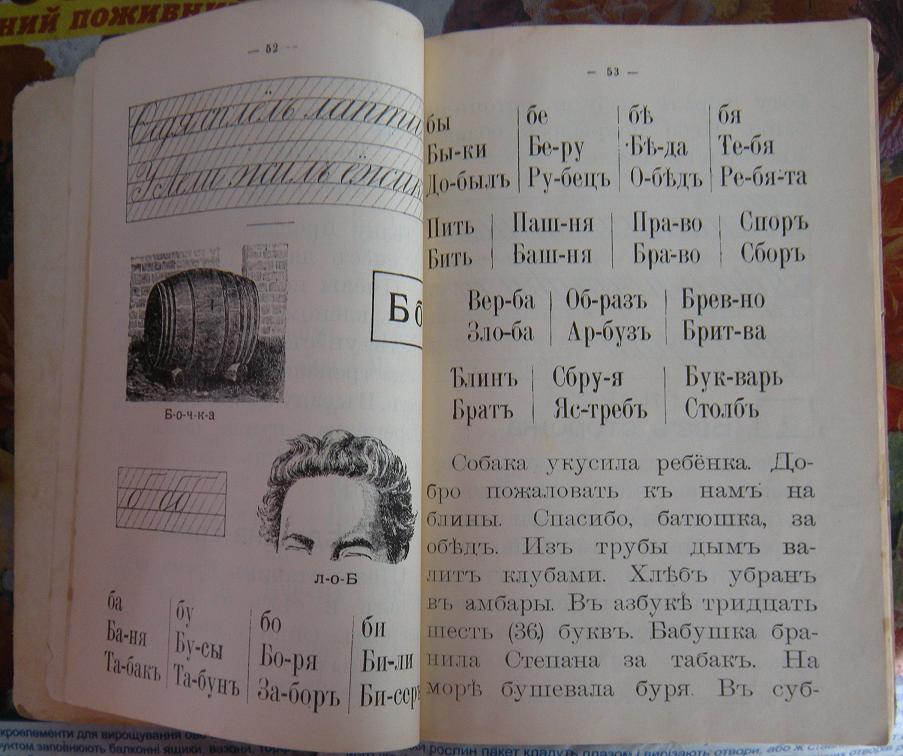 ний поживни
— 52 —
лапти
жилъ ёжикъ
Бб
Б-о-ч-к-а
б бб
л-о-Б
ба бу бо би
Ба-ня Бу-сы Бо-ря Би-ли
Та-бакъ Та-бунъ За-боръ Би-серъ
— 53 —
бы бе бѣ бя
Бы-ки Бе-ру Бѣ-да Те-бя
До-былъ Ру-бецъ О-бѣдъ Ре-бя-та
Пить Паш-ня Пра-во Споръ
Бить Баш-ня Бра-во Сборъ
Вер-ба Об-разъ Брев-но
Зло-ба Ар-бузъ Брит-ва
Блинъ Сбру-я Бук-варь
Братъ Яс-требъ Столбъ
Собака укусила ребёнка. До-
бро пожаловать къ намъ на
блины. Спасибо, батюшка, за
обѣдъ. Изъ трубы дымъ ва-
литъ клубами. Хлѣбъ убранъ
въ амбары. Въ азбукѣ тридцать
шесть (36.) буквъ. Бабушка бра-
нила Степана за табакъ. На
морѣ бушевала буря. Въ суб-
рунтом заповнюють балконні ящики, вазони, рослин пакет кладуть плазом і вирізають отвори, або ж